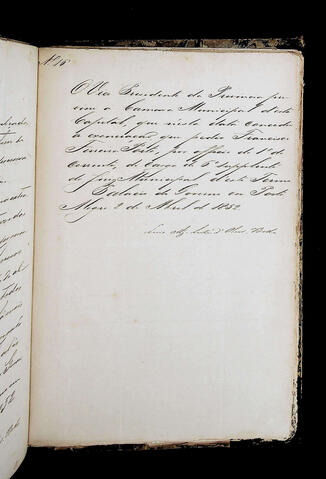 Nº 15
O Vice Presidente da Provincia
a Camara Municipal d'esta
Capital, que n'esta data concedeo
a exoneração que pedio Francisco
Porto, por officio de 1º do
corrente, do cargo de 5º Supplente
do Juiz Municipal deste Termo
Palacio do Governo em Porto
Alegre 2 de Abril de 1852
Luis Alz Leite d'Olivª Bello